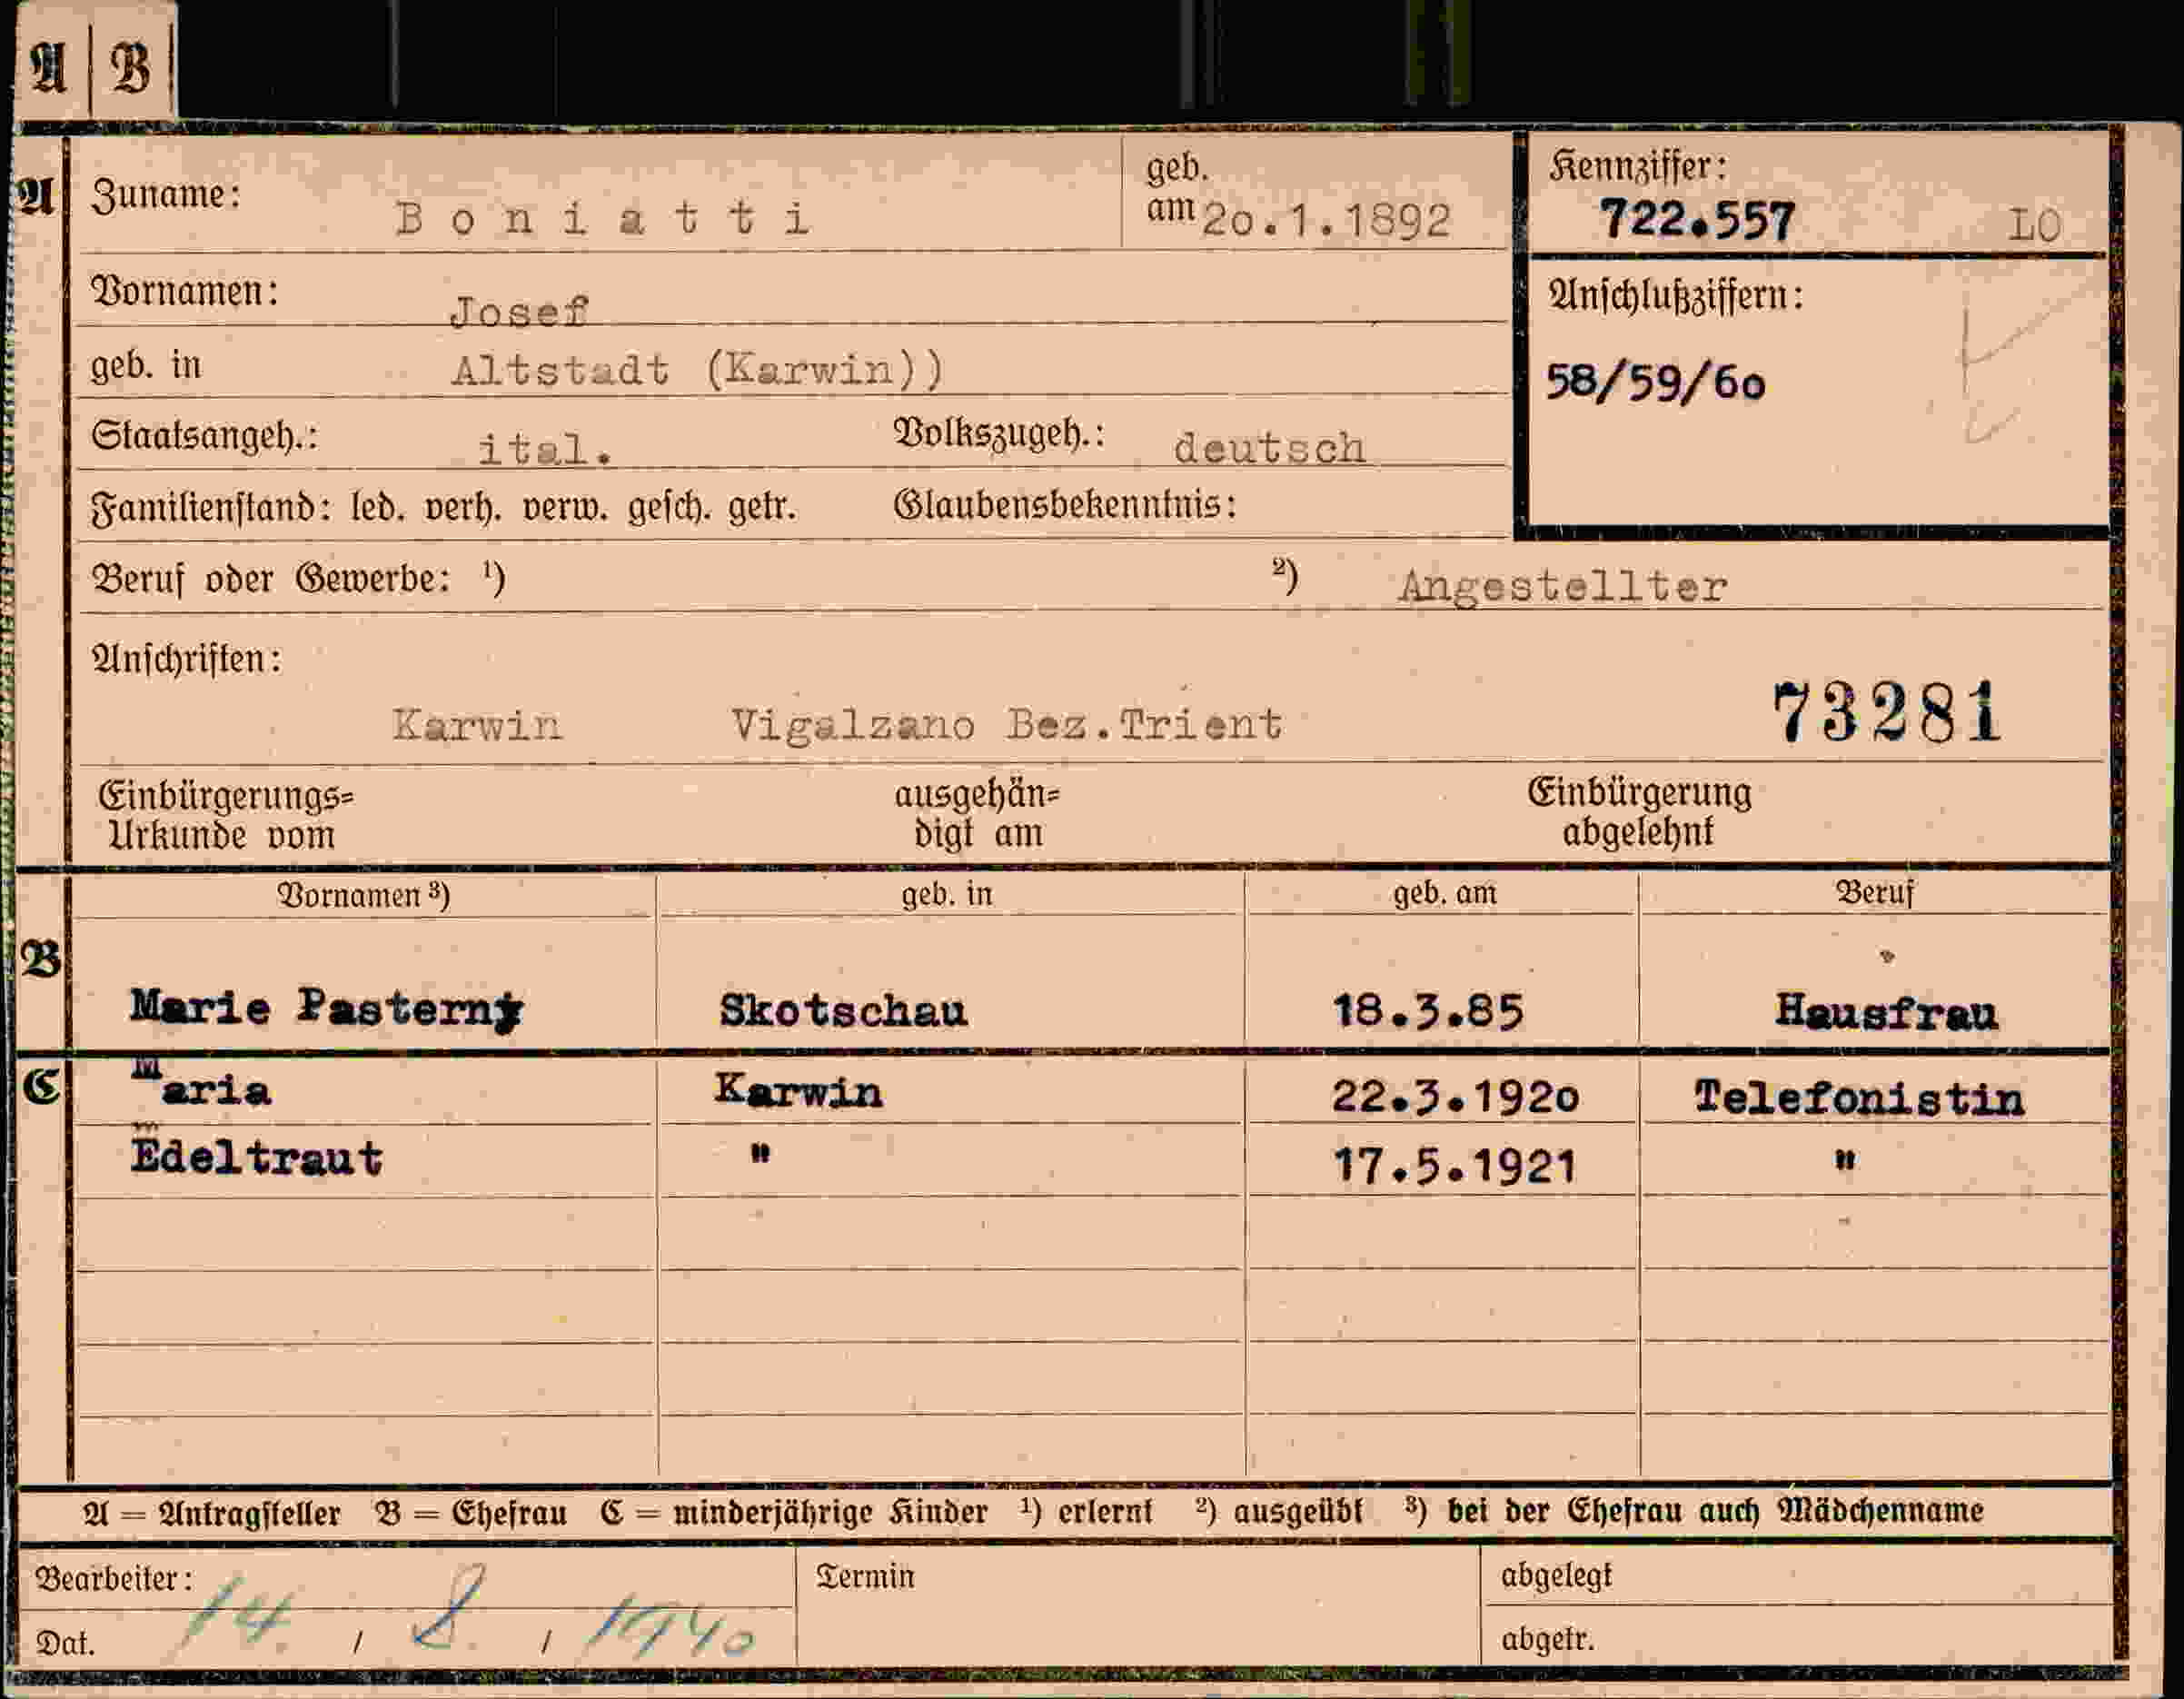 A B
A Zuname: Boniatti geb. am 20.1.1892
Kennziffer: 722.557 LO
Vornamen: Josef
Anschlußziffern:
58/59/60
geb. in Altstadt (Karwin))
Staatsangeh.: ital. Volkszugeh.: deutsch
Familienstand: led. verh. verw. gesch. getr. Glaubensbekenntnis:
Beruf oder Gewerbe: ¹) ²) Angestellter
Anschriften:
Karwin Vigalzano Bez.Trient 73281
Einbürgerungs= Urkunde vom ausgehän= digt am Einbürgerung abgelehnt
Vornamen ³) geb. in geb. am Beruf
B Marie Pasterny Skotschau 18.3.85 Hausfrau
C Maria Karwin 22.3.1920 Telefonistin
Edeltraut " 17.5.1921 "
A = Antragsteller B = Ehefrau C = minderjährige Kinder ¹) erlernt ²) ausgeübt ³) bei der Ehefrau auch Mädchenname
Bearbeiter: Termin abgelegt
Dat. 14. / 8. / 1940 abgetr.